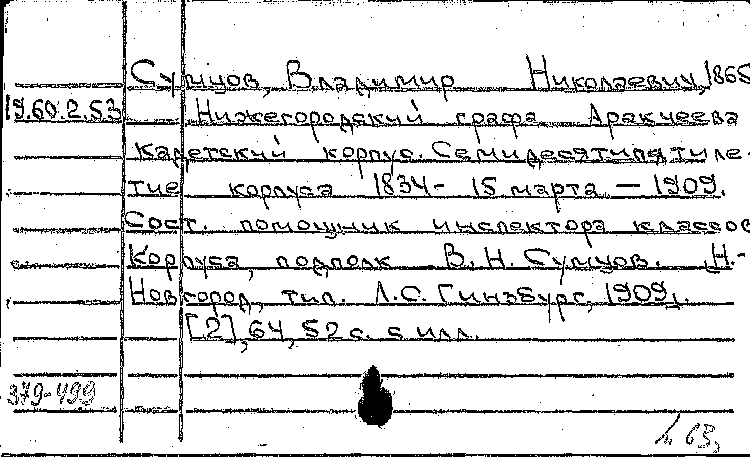 Сумцов, Владимир Николаевич, 1865
19.60.2.53 Нижегородский графа Аракчеева
кадетский корпус. Семидесятипятиле-
тие корпуса 1834- 15 марта — 1909.
Сост. помощник инспектора классов
Корпуса, подполк В.Н. Сумцов. Н.-
Новгород, тип. Л.С. Гинзбург, 1909.
[2], 64, 52 с. с илл.
379-499